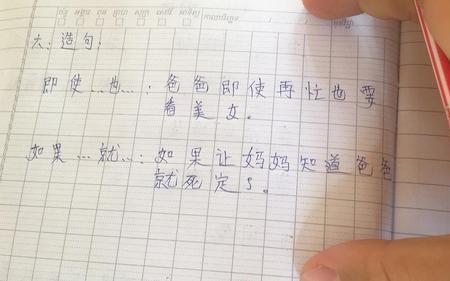 六：造句：
即使…也…：爸爸即使再忙也要
看美女。
如果…就…：如果让妈妈知道爸爸
就死定了。